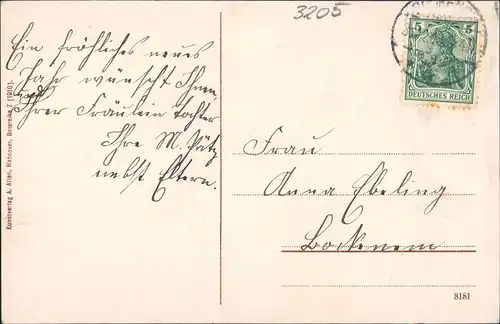 3205
Ein fröhliches neues
Jahr wünscht Ihnen,
und
Ihrer Fräulein Tochter
Ihre M.
nebst Eltern.
5
DEUTSCHES REICH
Frau
Anna Ebeling
Bockenem
8181
Kunstverlag A. Alten, Hannover, 7 (1910).